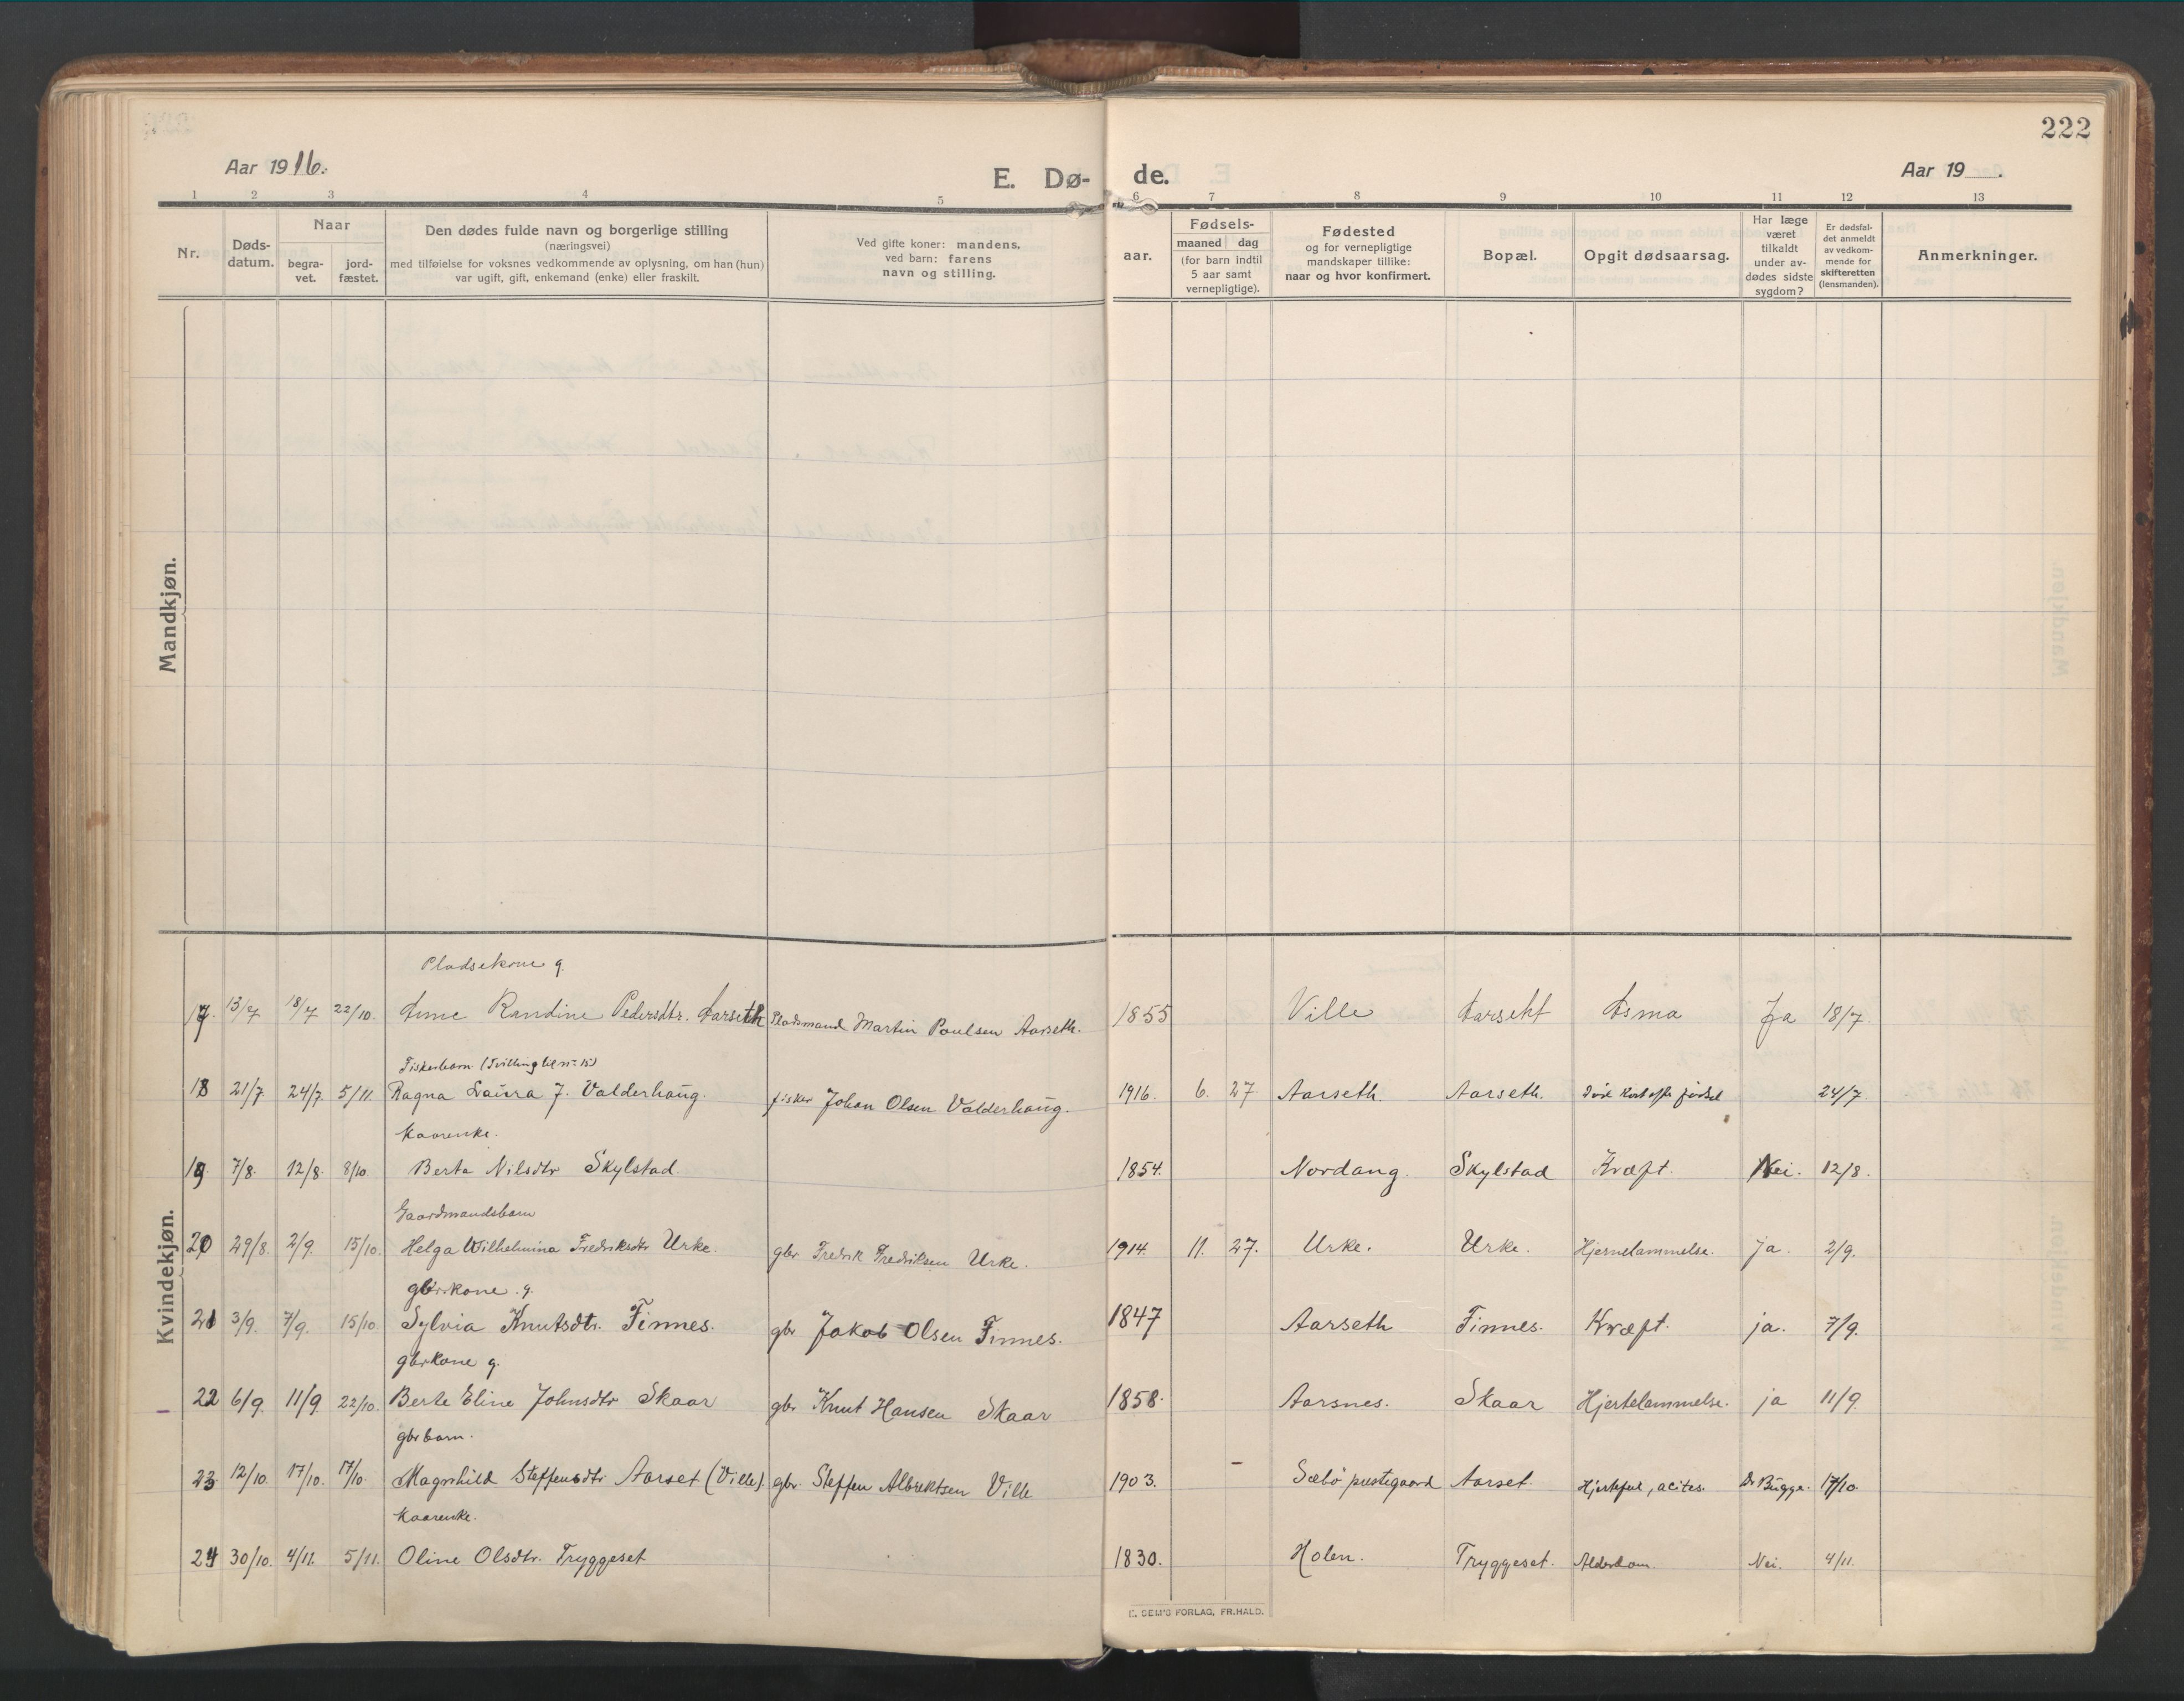 222
Aar 1916.
E. Dø- de.
Aar 19 .
1 2 3 4 5 6 7 8 9 10 11 12 13
Nr.
Døds-
datum.
Naar
begra-
vet.
jord-
fæstet.
Den dødes fulde navn og borgerlige stilling
(næringsvei)
med tilføielse for voksnes vedkommende av oplysning, om han (hun)
var ugift, gift, enkemand (enke) eller fraskilt.
Ved gifte koner: mandens,
ved barn: farens
navn og stilling.
aar.
Fødsels-
maaned dag
(for barn indtil
5 aar samt
vernepligtige).
Fødested
og for vernepligtige
mandskaper tillike:
naar og hvor konfirmert.
Bopæl.
Opgit dødsaarsag.
Har læge
været
tilkaldt
under av-
dødes sidste
sygdom?
Er dødsfal-
det anmeldt
av vedkom-
mende for
skifteretten
(lensmanden).
Anmerkninger.
Mandkjøn.
Kvindekjøn.
Pladsekone g.
17. 13/7 18/7 22/10. Anne Randine Pedersdtr. Aarseth Pladsmand Martin Poulsen Aarseth. 1855 Ville Aarseht Asma Ja 18/7.
Fiskerbarn (Tvilling til nr 15)
18 21/7. 24/7. 5/11. Ragna Laura J. Valderhaug. fisker Johan Olsen Valderhaug. 1916. 6. 27 Aarseth Aarseth. Döde kort efter födsel 24/7.
Kaarenke.
19. 7/8. 12/8. 8/10. Berta Nilsdtr Skylstad. 1854. Nordang. Skylstad Kræft. Nei. 12/8.
Gaardmandsbarn
20 29/8. 2/9. 15/10. Helga Wilhelmina Fredriksdtr Urke. gbr Fredrik Fredriksen Urke. 1914. 11. 27. Urke. Urke. Hjernelammelse. ja. 2/9.
gbrkone. g.
21 3/9. 7/9. 15/10 Sylvia Knutsdtr. Finnes. gbr Jakob Olsen Finnes. 1847 Aarseth Finnes. Kræft. ja. 7/9.
gbrkone g.
22 6/9. 11/9. 22/10. Berte Eline Johnsdtr Skaar gbr Knut Hansen Skaar 1858. Aarsnes. Skaar Hjertelammelse. ja 11/9.
gbrbarn.
23. 12/10. 17/10. 17/10. Magnhild Steffensdtr Aarset (Ville). gbr. Steffen Albrektsen Ville 1903. - Sæbö prestegaard Aarset. Hjertefeil, acites. Dr Bugge. 17/10.
Kaarenke.
24 30/10. 4/11. 5/11. Oline Olsdtr. Tryggeset 1830. Holen. Tryggeset. Alderdom. Nei. 4/11.
E. SEM'S FORLAG, FR.HALD.